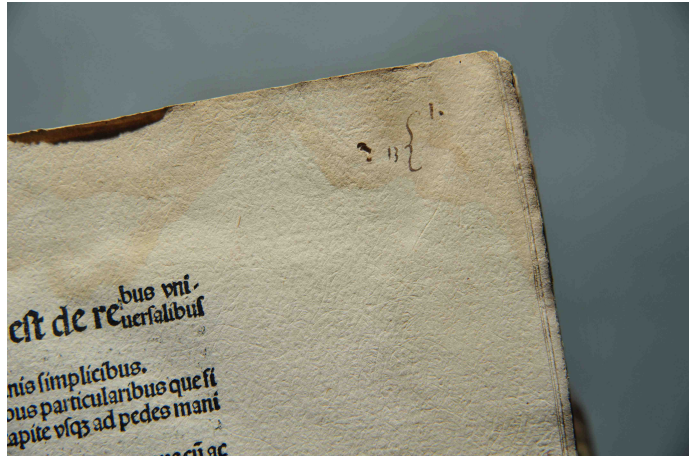 13 { 1.
est de rebus vni-
uersalibus
nis simplicibus.
bus particularibus que fi
apite vsqꝫ ad pedes mani